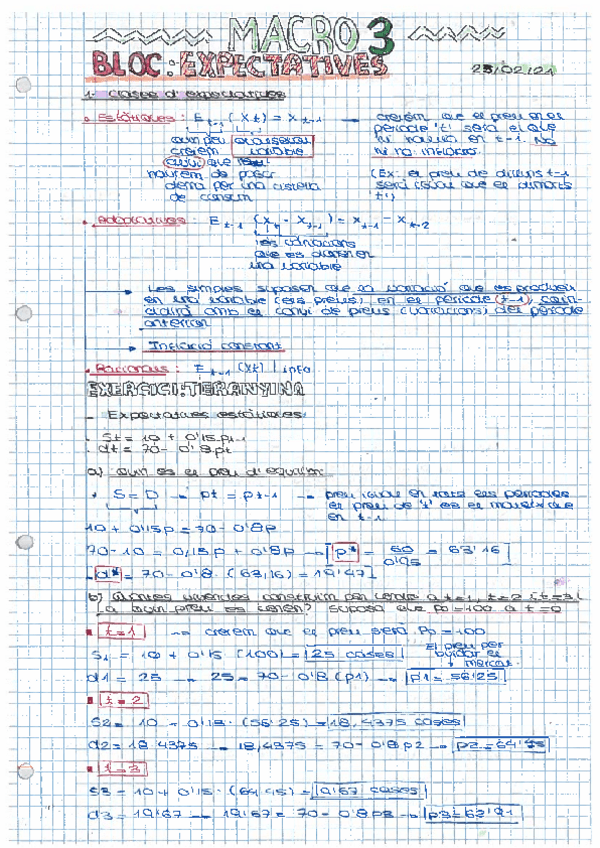 MACRO 3
BLOC: EXPECTATIVES
25/02/21
1- Classes d'expectatives
• Estàtiques: E t-1 (Xt) = X t-1 → creiem que el preu en el
període 't' serà el que
hi havia en t-1. No
hi ha inflació.
quin preu qualsevol
creiem variable
avui que
haurem de pagar
demà per una cistella
de consum
(Ex: el preu de dilluns t-1
serà igual que el dimarts
't')
• Adaptatives: E t-1 (Xt - X t-1) = X t-1 - X t-2
les variacions
que es donen en
una variable
→ Les simples suposen que la variació que es produeix
en una variable (els preus) en el període (t-1), coin-
cidirà amb el canvi de preus (variacions) del període
anterior
→ Inflació constant
• Racionals: E t-1 (Xt) | info
EXERCICI: TERANYINA
- Expectatives estàtiques:
· St = 10 + 0'15 pt-1
· dt = 70 - 0'8 pt
a) Quin és el preu d'equilibri
• S = D → pt = pt-1 → preu igual en tots els períodes
el preu de 't' és el mateix que
en t-1
10 + 0'15p = 70 - 0'8p
70 - 10 = 0,15p + 0'8p → p* = 60/0'95 = 63'16
· d* = 70 - 0'8 · (63,16) = 19'47
b) Quantes vivendes construïm per vendre a t=1, t=2 i t=3 i
a quin preu es venen? Suposa que P0 = 100 a t=0
▪ t=1 → creiem que el preu serà P0 = 100
S1 = 10 + 0'15 · (100) = 25 cases
El preu per
buidar el
mercat
d1 = 25 → 25 = 70 - 0'8 (p1) → p1 = 56'25
▪ t=2
S2 = 10 + 0'15 · (56'25) = 18,4375 cases
d2 = 18'4375 → 18,4375 = 70 - 0'8 p2 → p2 = 64'45
▪ t=3
S3 = 10 + 0'15 · (64'45) = 19'67 cases
d3 = 19'67 → 19'67 = 70 - 0'8 p3 → p3 = 62'91